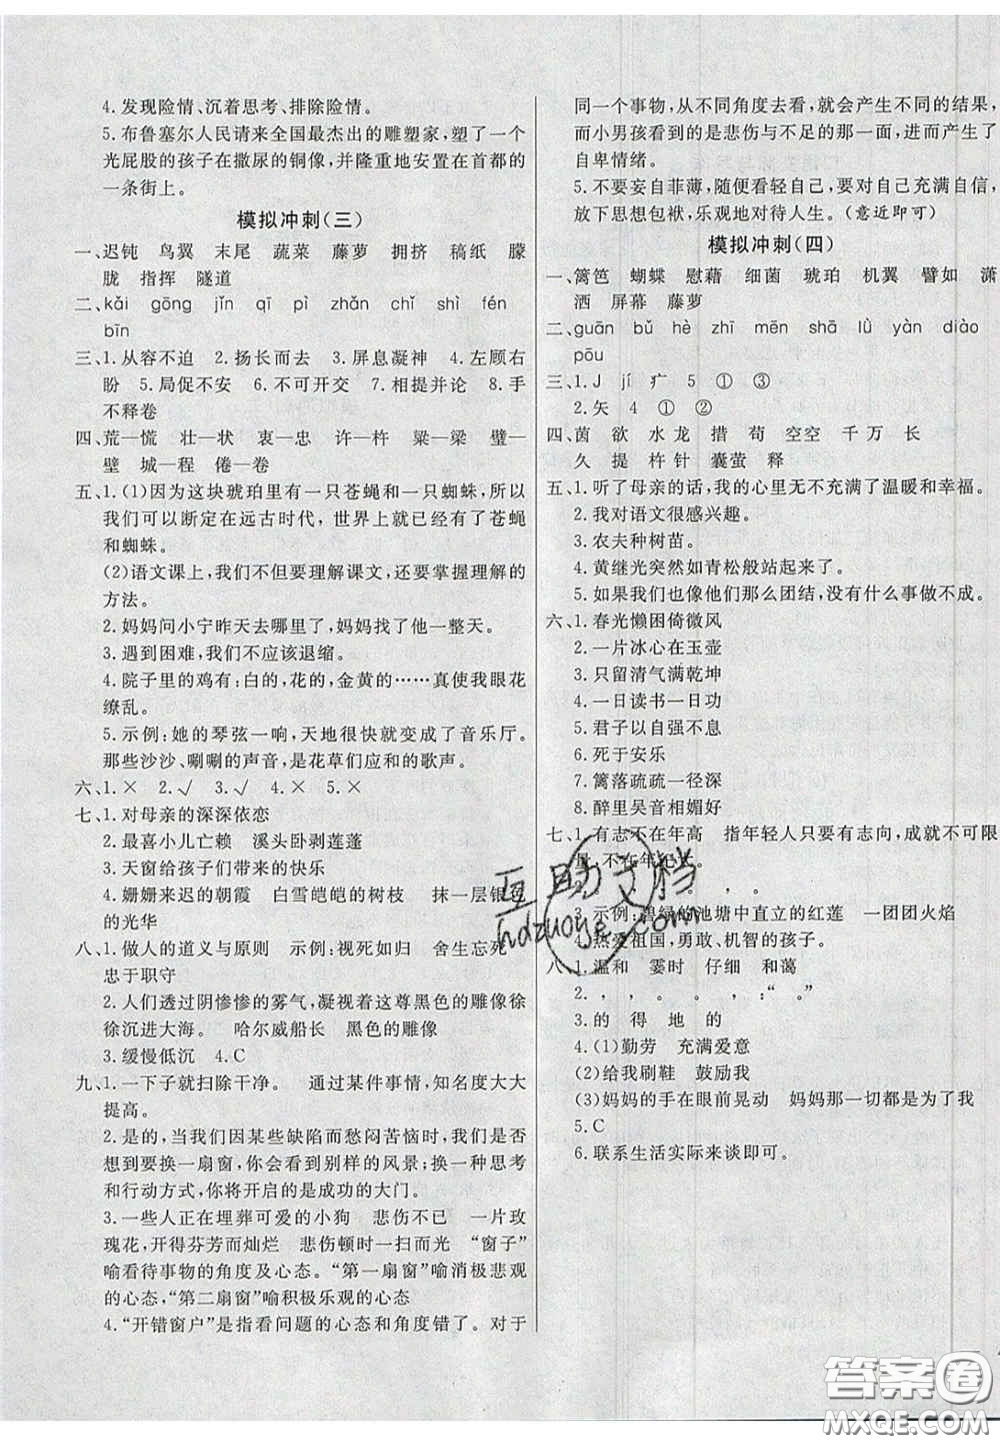 4.发现险情、沉着思考、排除险情。
5.布鲁塞尔人民请来全国最杰出的雕塑家,塑了一个
光屁股的孩子在撒尿的铜像,并隆重地安置在首都的
一条街上。
模拟冲刺(三)
一、迟钝 鸟翼 末尾 蔬菜 藤萝 拥挤 稿纸 朦
胧 指挥 隧道
二、kǎi gōng jǐn qī pì zhǎn chǐ shì fén
bīn
三、1.从容不迫 2.扬长而去 3.屏息凝神 4.左顾右
盼 5.局促不安 6.不可开交 7.相提并论 8.手
不释卷
四、荒—慌 壮—状 衷—忠 许—杵 粱—梁 璧—
壁 城—程 倦—卷
五、1.(1)因为这块琥珀里有一只苍蝇和一只蜘蛛,所以
我们可以断定在远古时代,世界上就已经有了苍蝇
和蜘蛛。
(2)语文课上,我们不但要理解课文,还要掌握理解的
方法。
2.妈妈问小宁昨天去哪里了,妈妈找了他一整天。
3.遇到困难,我们不应该退缩。
4.院子里的鸡有:白的,花的,金黄的……真使我眼花
缭乱。
5.示例:她的琴弦一响,天地很快就变成了音乐厅。
那些沙沙、唰唰的声音,是花草们应和的歌声。
六、1.× 2.√ 3.√ 4.× 5.×
七、1.对母亲的深深依恋
2.最喜小儿亡赖 溪头卧剥莲蓬
3.天窗给孩子们带来的快乐
4.姗姗来迟的朝霞 白雪皑皑的树枝 抹一层银色
的光华
八、1.做人的道义与原则 示例:视死如归 舍生忘死
忠于职守
2.人们透过阴惨惨的雾气,凝视着这尊黑色的雕像徐
徐沉进大海。 哈尔威船长 黑色的雕像
3.缓慢低沉 4.C
九、1.一下子就扫除干净。 通过某件事情,知名度大大
提高。
2.是的,当我们因某些缺陷而愁闷苦恼时,我们是否
想到要换一扇窗,会看到别样的风景;换一种思考
和行动方式,你将开启的是成功的大门。
3.一些人正在埋葬可爱的小狗 悲伤不已 一片玫
瑰花,开得芬芳而灿烂 悲伤顿时一扫而光 “窗子”
喻看待事物的角度及心态。“第一扇窗”喻消极悲观
的心态,“第二扇窗”喻积极乐观的心态
4.“开错窗户”是指看问题的心态和角度错了。对于
同一个事物,从不同角度去看,就会产生不同的结果,
而小男孩看到的是悲伤与不足的那一面,进而产生了
自卑情绪。
5.不要妄自菲薄,随便看轻自己,要对自己充满自信,
放下思想包袱,乐观地对待人生。(意近即可)
模拟冲刺(四)
一、篱笆 蝴蝶 慰藉 细菌 琥珀 机翼 譬如 潇
洒 屏幕 藤萝
二、guān bǔ hè zhī mēn shā lǜ yàn diào
pōu
三、1.J jí 疒 5 ① ③
2.矢 4 ① ②
四、茵 欲 水 龙 措 苟 空空 千 万 长
久 提 杵 针 囊萤 释
五、1.听了母亲的话,我的心里无不充满了温暖和幸福。
2.我对语文很感兴趣。
3.农夫种树苗。
4.黄继光突然如青松般站起来了。
5.如果我们也像他们那么团结,没有什么事做不成。
六、1.春光懒困倚微风
2.一片冰心在玉壶
3.只留清气满乾坤
4.一日读书一日功
5.君子以自强不息
6.死于安乐
7.篱落疏疏一径深
8.醉里吴音相媚好
七、1.有志不在年高 指年轻人只要有志向,成就不可限
量,不在年纪大。
, 。 。
3.示例:碧绿的池塘中直立的红莲 一团团火焰
4.热爱祖国,勇敢、机智的孩子。
八、1.温和 霎时 仔细 和蔼
2. , , 。 。 , :“ 。”
3.的 得 地 的
4.(1)勤劳 充满爱意
(2)给我刷鞋 鼓励我
(3)妈妈的手在眼前晃动 妈妈那一切都是为了我
5.C
6.联系生活实际来谈即可。
互助文档
hdzuoye.com
答案圈
MXQE.COM